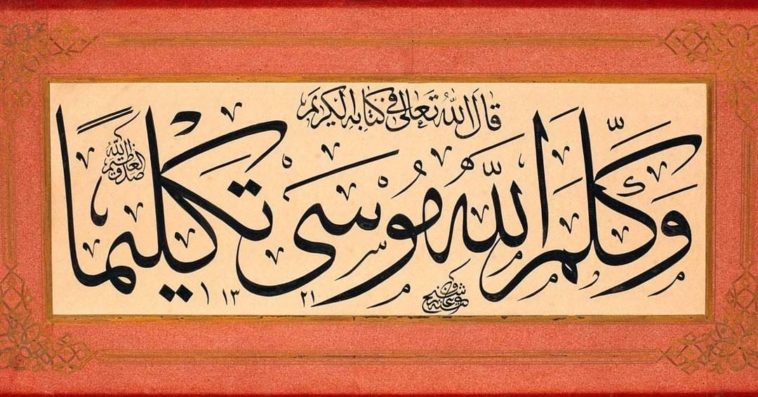 قال الله تعالى في كتابه الكريم
وَكَلَّمَ اللّٰهُ مُوسَى تَكْلِيمًا
صدق الله العظيم